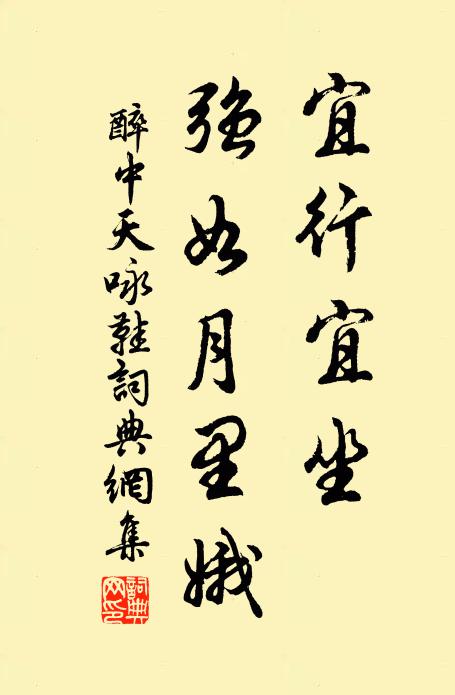 宜行宜坐
強如月里娥
醉中天咏鞋詞典網集
詞典网印